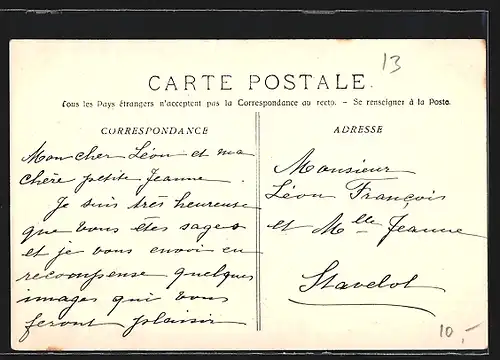 13
CARTE POSTALE.
Tous les Pays étrangers n'acceptent pas la Correspondance au recto. - Se renseigner à la Poste.
CORRESPONDANCE
Mon cher Léon et ma
chère petite Jeanne.
Je suis très heureuse
que vous êtes sages
et je vous envoi en
recompense quelques
images qui vous
feront plaisir
ADRESSE
Monsieur
Léon François
et Mlle Jeanne
Stavelot
10,-